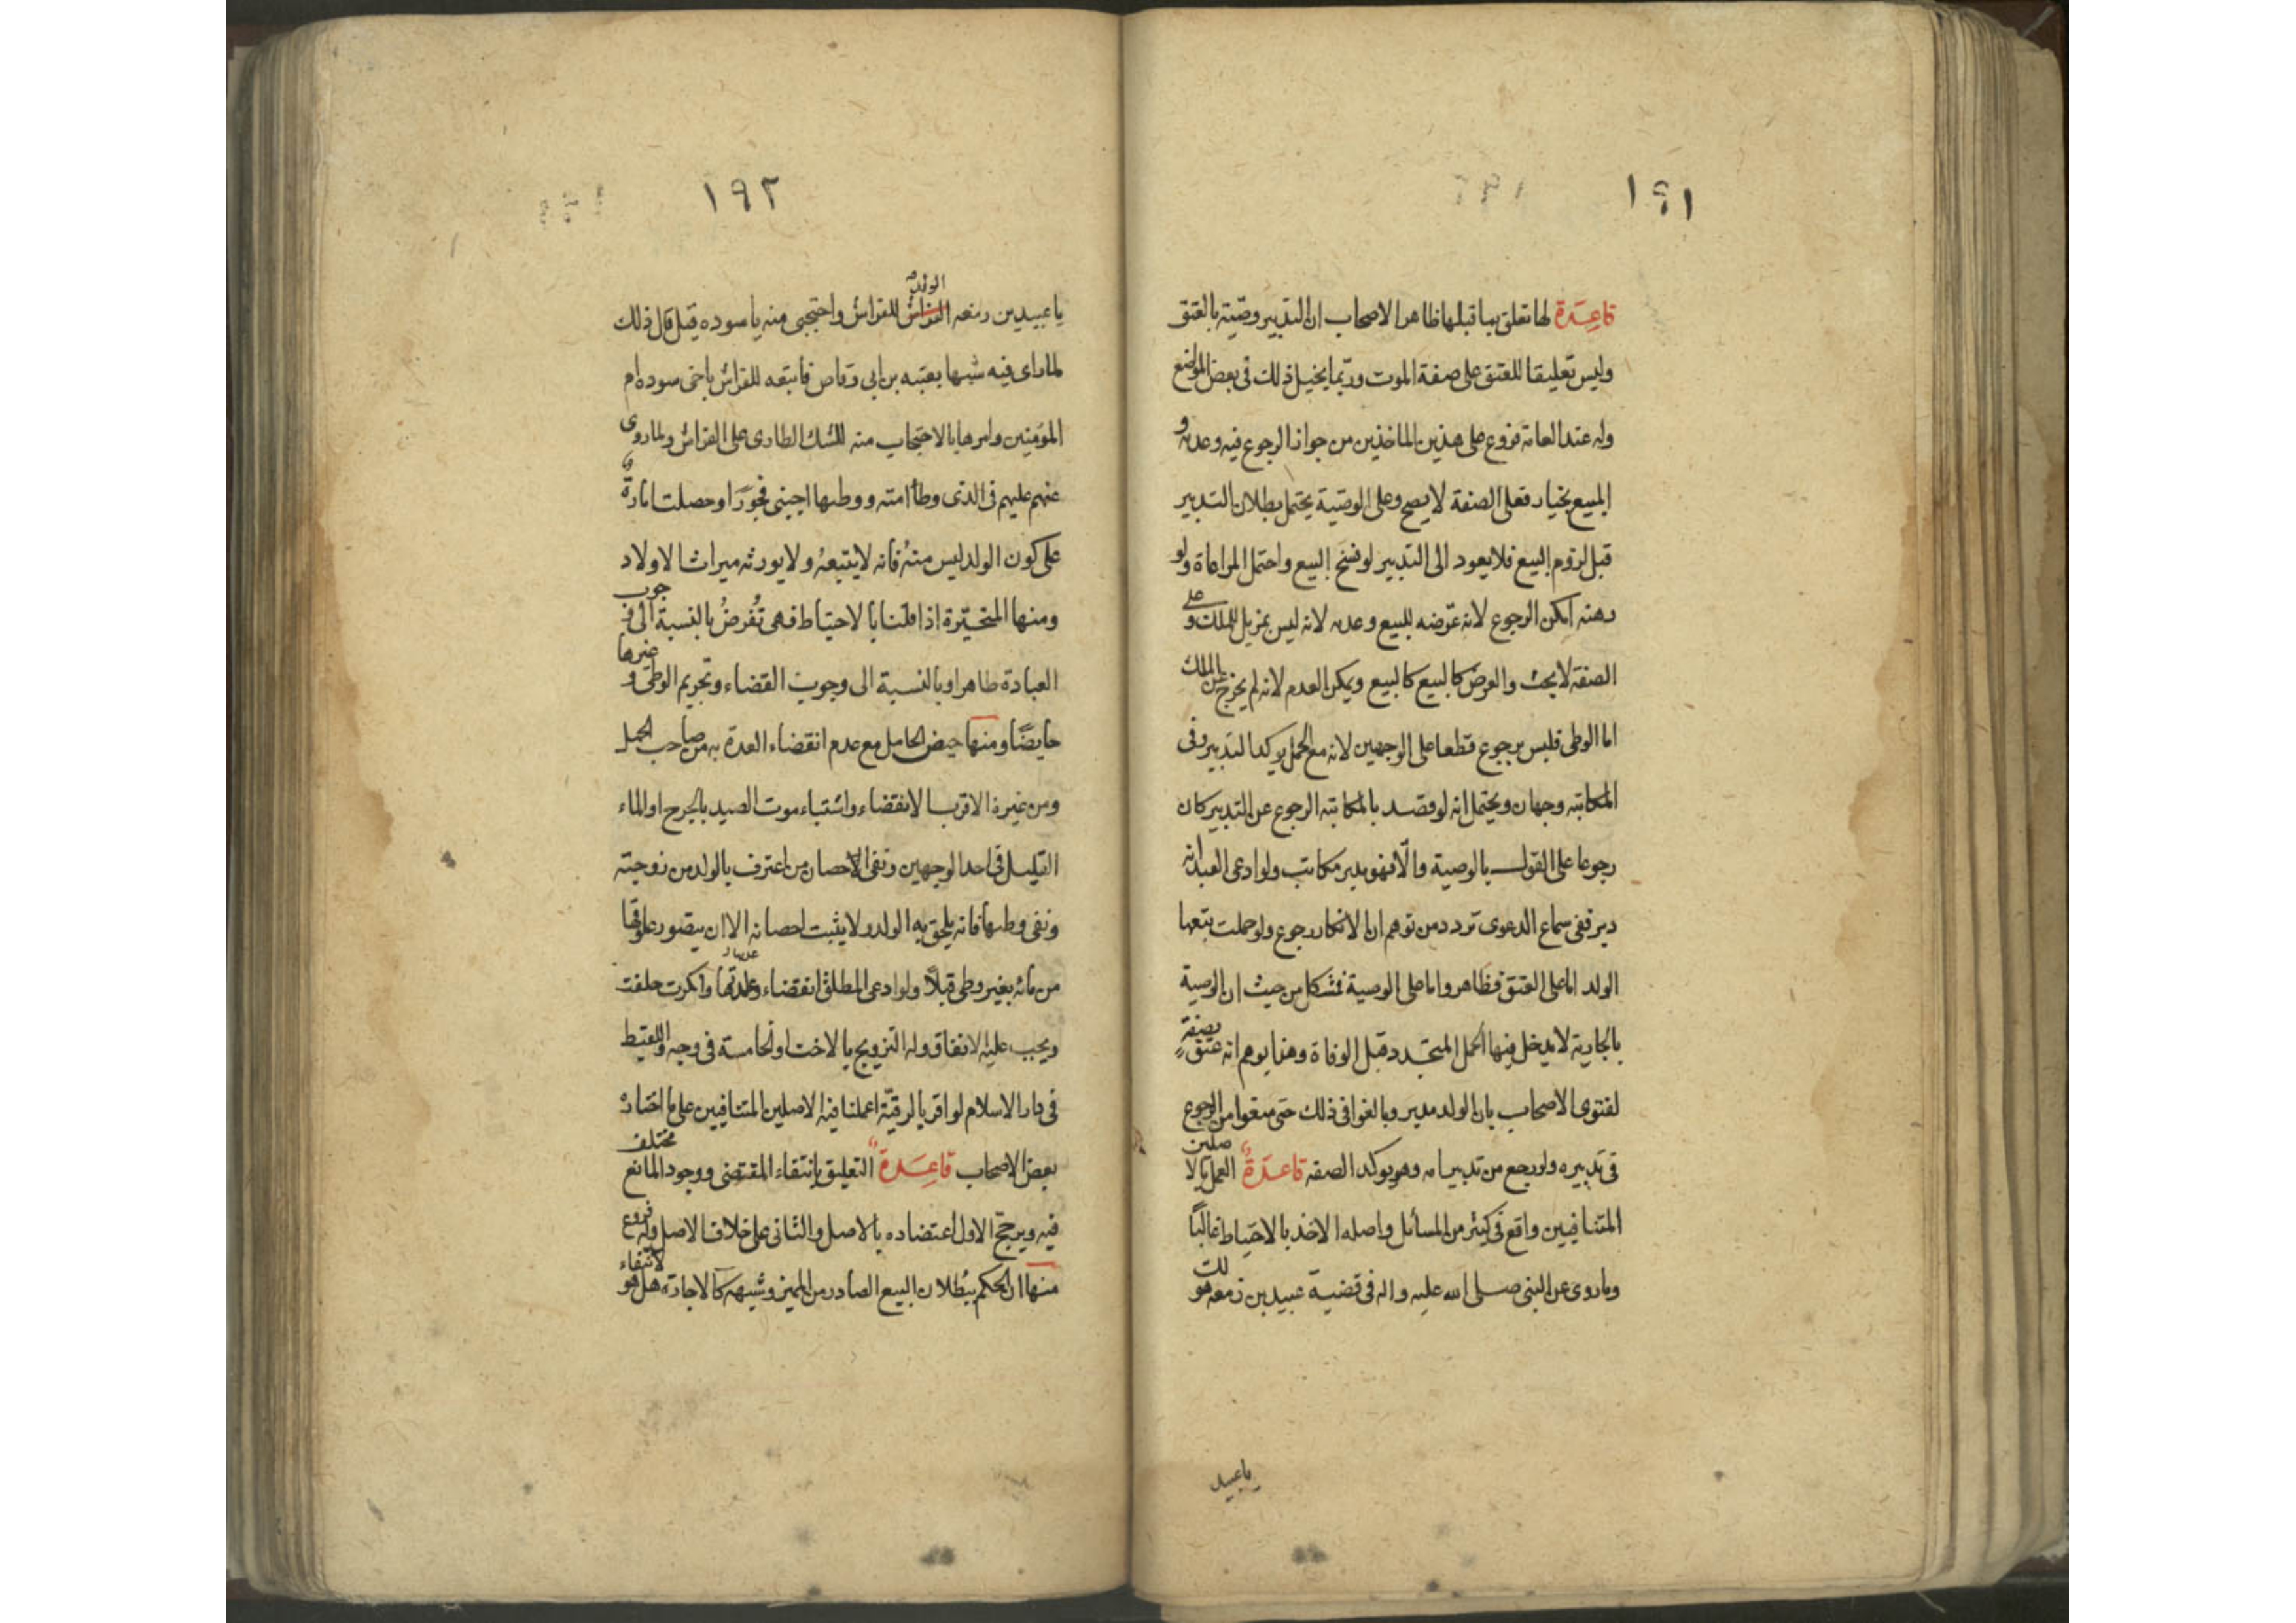 ١٩١
قاعدة لها تعلق بما قبلها ظاهر الاصحاب ان التدبير وصية بالعتق
وليس تعليقا للعتق على صفة الموت وربما يخيل ذلك فى بعض المواضع
وله عند العامة فروع على هذين الماخذين من جواز الرجوع فيه وعدمه و
المبيع بخيار فعلى الصفة لا يصح وعلى الوصية يحتمل بطلان التدبير
قبل لزوم البيع فلا يعود الى التدبير لو فسخ البيع واحتمل المراعاة ولو
رهنه امكن الرجوع لانه عرضه للبيع وعدمه لانه ليس بمزيل للملك وعلى
الصفة لا بحث والعرض كالبيع كالبيع ويمكن العدم لانه لم يخرج عن الملك
اما الوطى فليس برجوع قطعا على الوجهين لانه مع الحمل يوكد التدبير وفى
المكاتبه وجهان ويحتمل انه لو قصد بالمكاتبه الرجوع عن التدبير كان
رجوعا على القول بالوصية والّا فهو مدبر مكاتب ولو ادعى العبد انه
دبر ففى سماع الدعوى تردد من توهم ان الانكار رجوع ولو حملت يتبعها
الولد اما على العتق فظاهر واما على الوصية فمشكل من حيث ان الوصية
بالجارية لا يدخل فيها الحمل المتجدد قبل الوفاة وهنا يوهم انه عتق بصفةٍ
لفتوى الاصحاب بان الولد مدبر وبالغوا فى ذلك حتى منعوا من الرجوع
فى تدبيره ولو رجع من تدبير امه وهو يوكد الصفه قاعدة العمل بالاصلين
المتنافيين واقع فى كثير من المسائل واصله الاخذ بالاحتياط غالبًا
وما روى عن النبى صلى الله عليه واله فى قضية عبيد بن زمعه هو لك
يا عبيد
١٩٢
يا عبيد بن زمعه الولد للفراش واحتجبى منه يا سوده قيل قال ذلك
لما راى فيه شبها بعتبه بن ابى وقاص فاتبعه للفراش باخى سوده ام
المؤمنين وامرها بالاحتجاب منه للشك الطارى على الفراش ولما روى
عنهم عليهم فى الذى وطأ امته ووطىها اجنبى فجورًا وحصلت امارةٌ
على كون الولد ليس منهُ فانه لا يتبعهُ ولا يورثه ميراث الاولاد
ومنها المتحيّرة اذا قلنا بالاحتياط فهى تُفرضُ بالنسبة الى وجوب
العبادة طاهرا وبالنسبة الى وجوب القضاء وتحريم الوطى وغيرها
حايضًا ومنها حيض الحامل مع عدم انقضاء العدة به من صاحب الحمل
ومن غيره الاقرب الانقضاء واشتباه موت الصيد بالجرح او الماء
القليل فى احد الوجهين ونفى الاحصان من اعترف بالولد من زوجته
ونفى وطىها فانه يلحق به الولد ولا يثبت احصانه الا ان يتصور علوقها
من مائه بغير وطى قبلًا ولو ادعى المطلق انقضاء عدتها وانكرت حلفت
ويجب عليه الانفاق وله التزويج بالاخت او الخامسة فى وجه واللقيط
فى دار الاسلام لو اقر بالرقيّة اعملنا فيه الاصلين المتنافيين على ما اختاره
بعض الاصحاب قاعدة التعليق بانتفاء المقتضى ووجود المانع مختلف
فيه ويرجح الاول اعتضاده بالاصل والثانى على خلاف الاصل وله فروع
منها ان الحكم ببُطلان البيع الصادر من المميز وشبهه كالاجارة هل هو لانتفاء